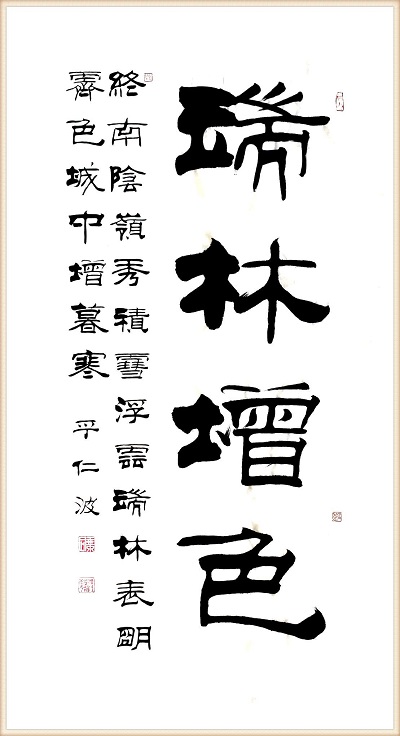 端林增色
終南陰嶺秀積雪浮雲端林表明
霽色城中增暮寒 仁波